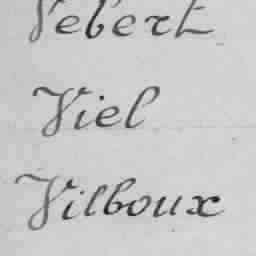 Vebert
Viel
Vilboux